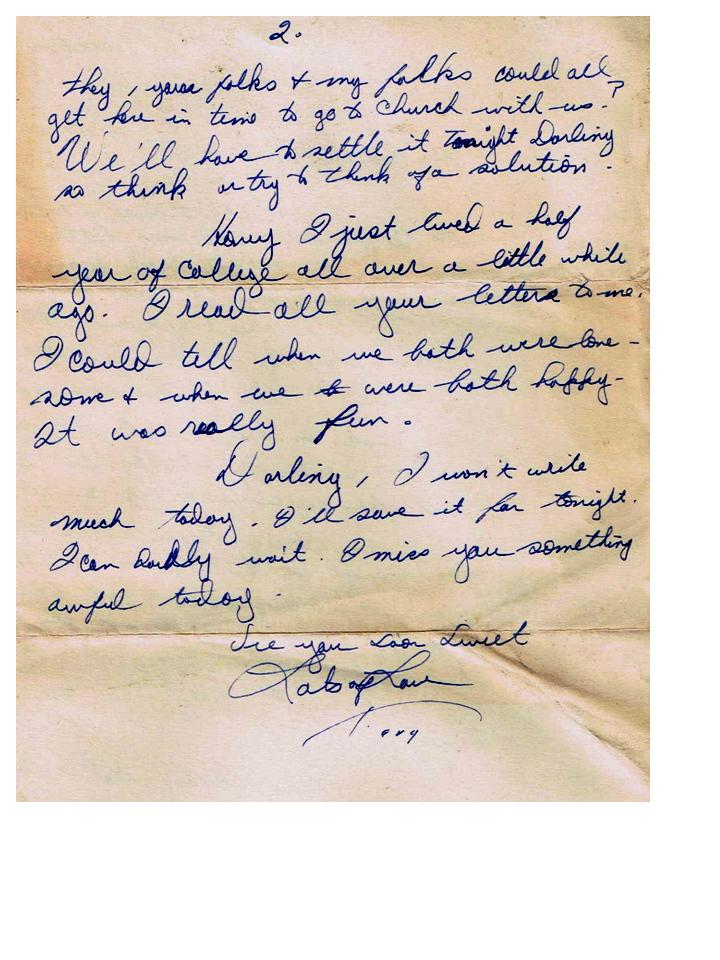 2.
they, your folks & my folks could all
get here in time to go to church with us?
We'll have to settle it tonight Darling
so think or try to think of a solution.
Hony I just lived a half
year of college all over a little while
ago. I read all your letters to me.
I could tell when we both were lone-
some & when we were both happy-
It was really fun.
Darling, I won't write
much today. I'll save it for tonight.
I can hardly wait. I miss you something
awful today.
See you soon Sweet
Lots of Love